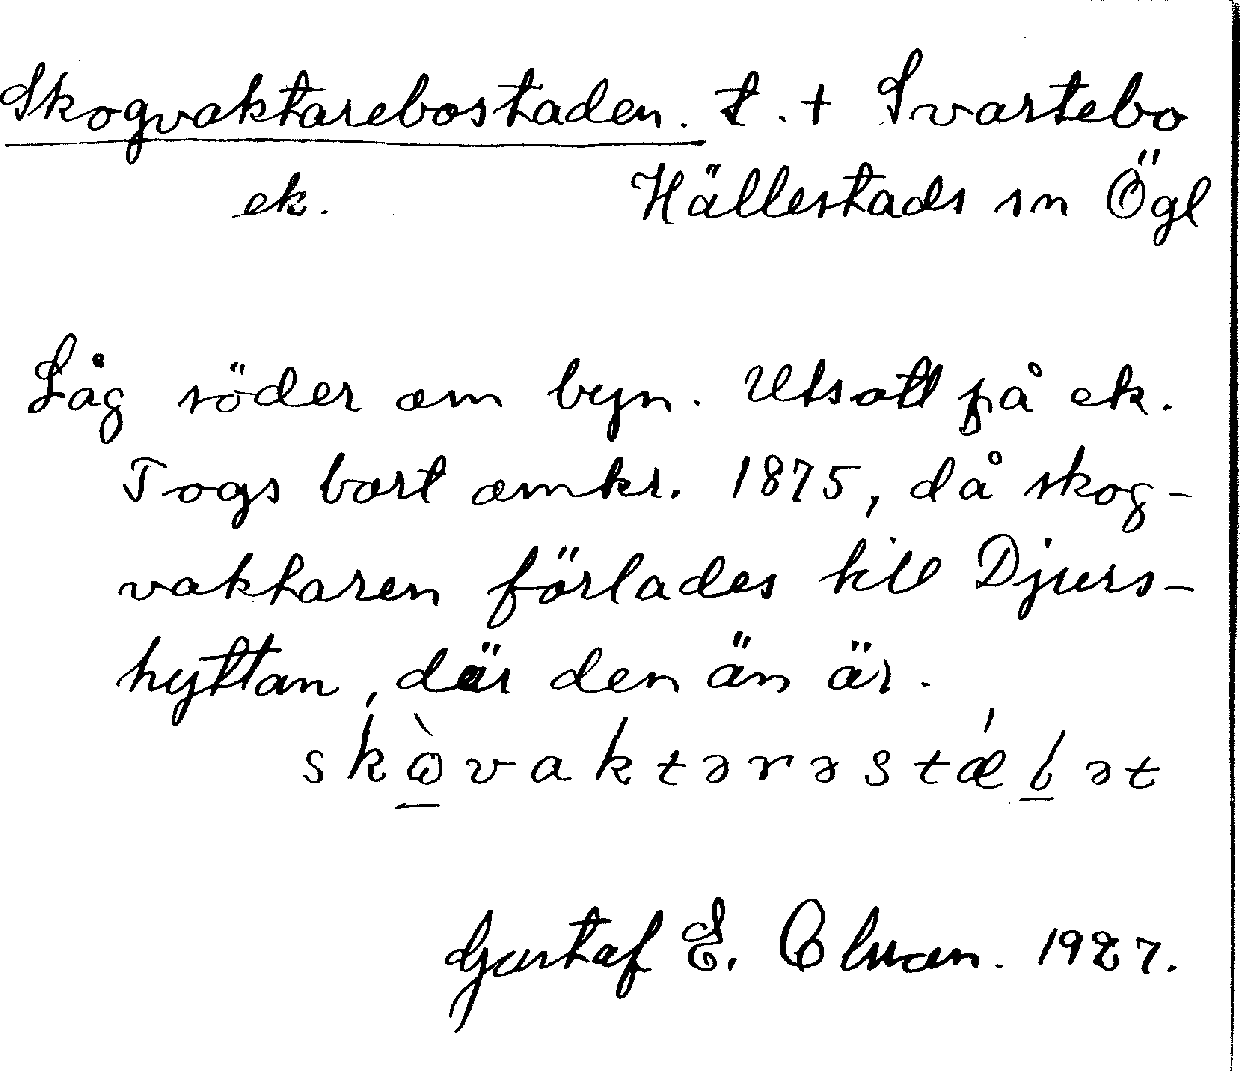 Skogvaktarebostaden. t. + Svartebo
ek. Hällestads sn Ögl
Låg söder om byn. Utsatt på ek.
Togs bort omkr. 1875, då skog-
vaktaren förlades till Djurs-
hyttan, där den än är.
Gustaf E. 1927.